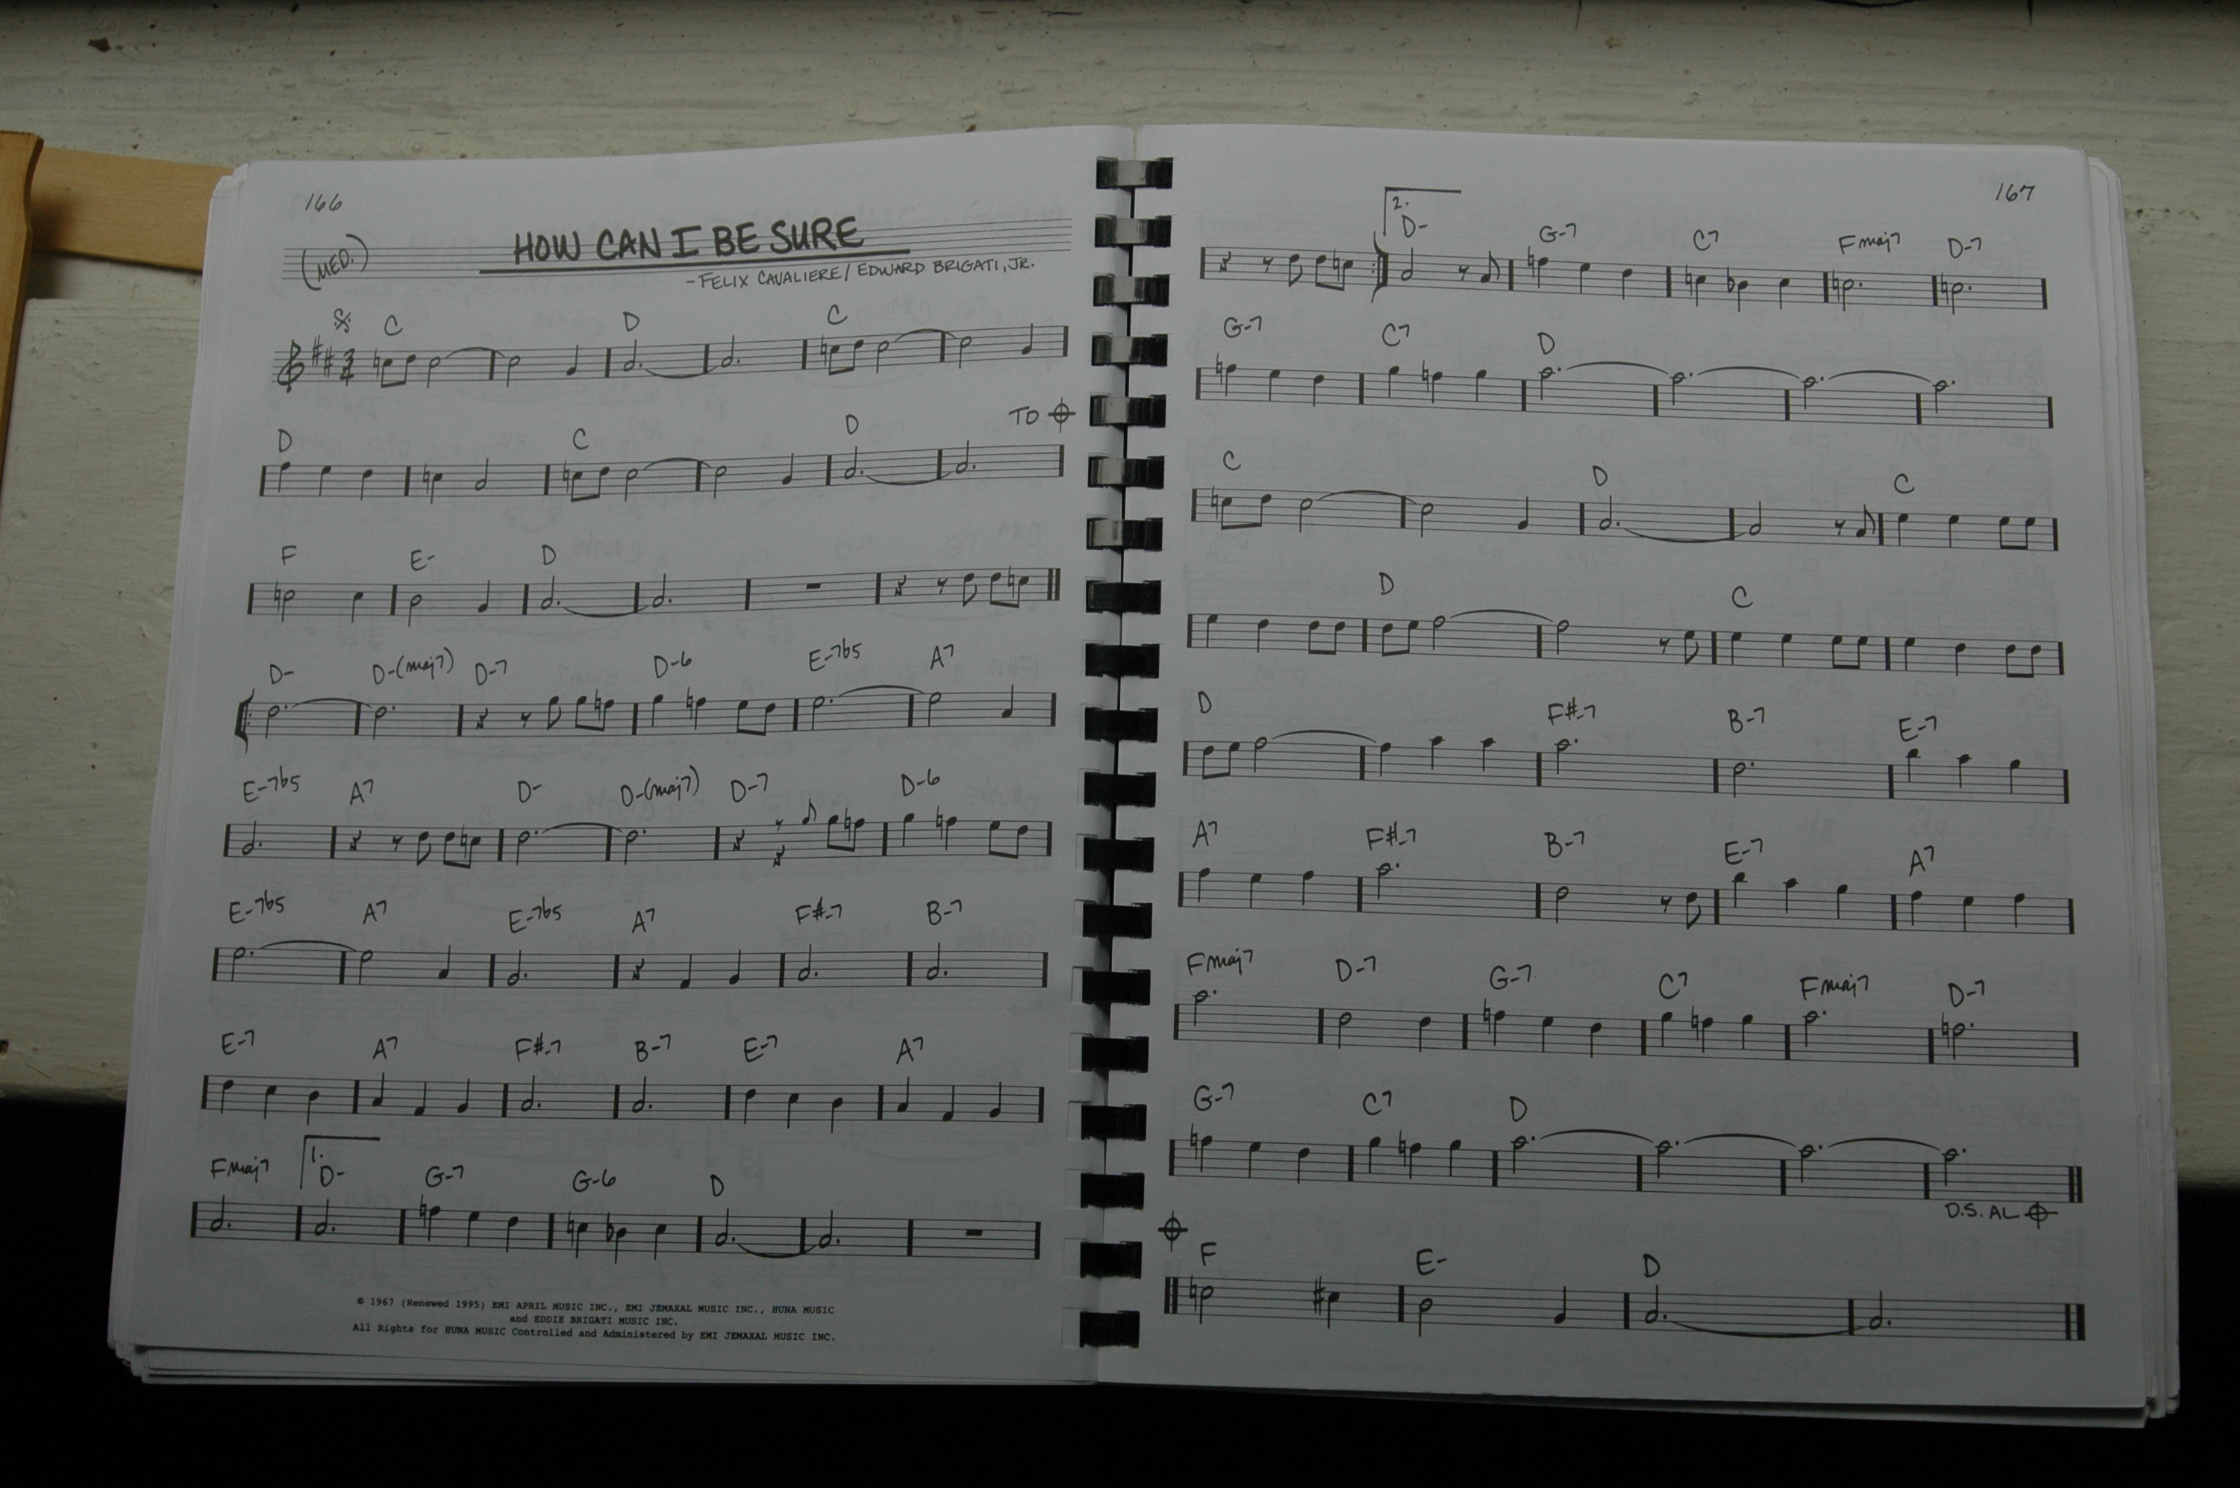 166
(MED.)
HOW CAN I BE SURE
- FELIX CAVALIERE / EDWARD BRIGATI, JR.
C D C
3/4
D C D TO
F E- D
D- D-(maj7) D-7 D-6 E-7b5 A7
E-7b5 A7 D- D-(maj7) D-7 D-6
E-7b5 A7 E-7b5 A7 F#-7 B-7
E-7 A7 F#-7 B-7 E-7 A7
Fmaj7 1. D- G-7 G-6 D
© 1967 (Renewed 1995) EMI APRIL MUSIC INC., EMI JEMAXAL MUSIC INC., HUNA MUSIC
and EDDIE BRIGATI MUSIC INC.
All Rights for HUNA MUSIC Controlled and Administered by EMI JEMAXAL MUSIC INC.
167
2. D- G-7 C7 Fmaj7 D-7
G-7 C7 D
C D C
D C
D F#-7 B-7 E-7
A7 F#-7 B-7 E-7 A7
Fmaj7 D-7 G-7 C7 Fmaj7 D-7
G-7 C7 D
D.S. AL
F E- D